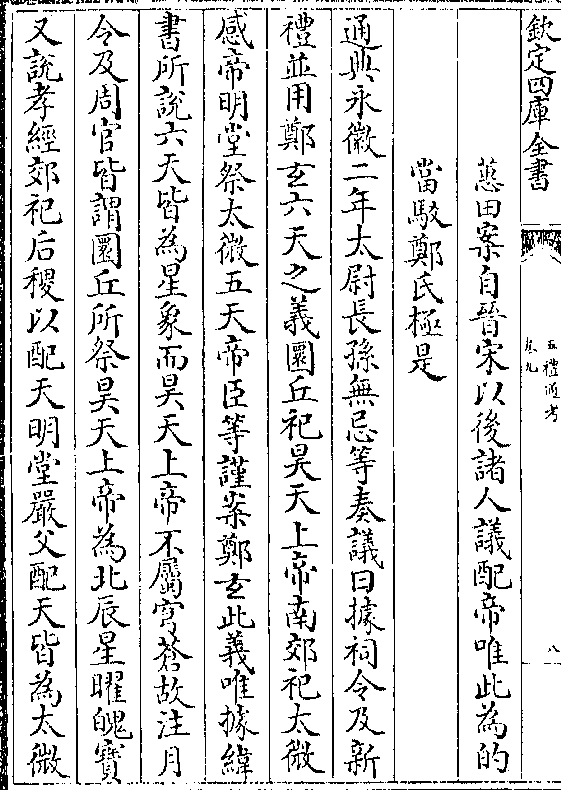 欽定四庫全書
五禮通考
卷九
八
蕙田案自晉宋以後諸人議配帝唯此為的
當駁鄭氏極是
通典永徽二年太尉長孫無忌等奏議曰據祠令及新
禮並用鄭玄六天之義圜丘祀昊天上帝南郊祀太微
感帝明堂祭太微五天帝臣等謹案鄭玄此義唯據緯
書所說六天皆為星象而昊天上帝不屬穹蒼故注月
令及周官皆謂圜丘所祭昊天上帝為北辰星曜魄寶
又說孝經郊祀后稷以配天明堂嚴父配天皆為太微